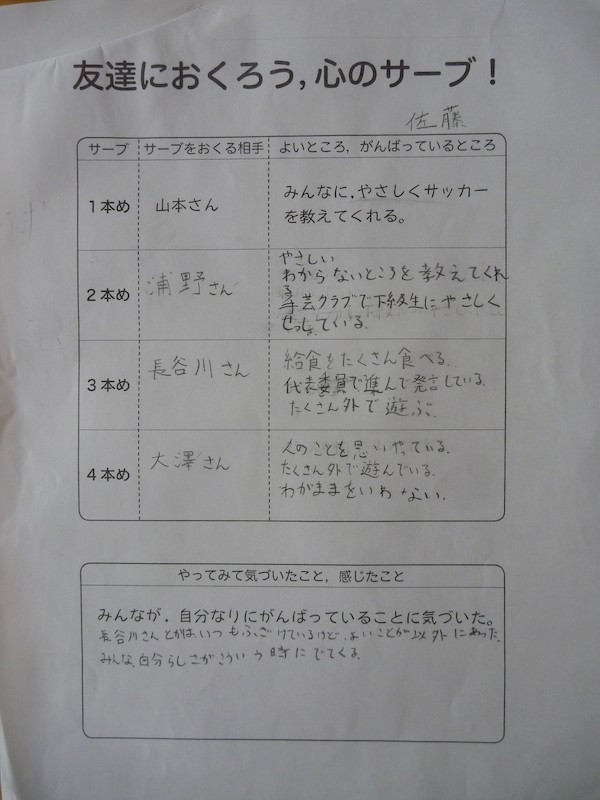 友達におくろう,心のサーブ!
佐藤
サーブ サーブをおくる相手 よいところ,がんばっているところ
1本め 山本さん
みんなに,やさしくサッカー
を教えてくれる。
2本め 浦野さん
やさしい
わからないところを教えてくれ
る
手芸クラブで下級生にやさしく
せっしている.
3本め 長谷川さん
給食をたくさん食べる.
代表委員で進んで発言している.
たくさん外で遊ぶ.
4本め 大澤さん
人のことを思いやっている.
たくさん外で遊んでいる.
わがままをいわない.
やってみて気づいたこと,感じたこと
みんなが,自分なりにがんばっていることに気づいた。
長谷川さんとかはいつもふざけているけど,よいことが以外にあった.
みんな,自分らしさがこういう時にでてくる.